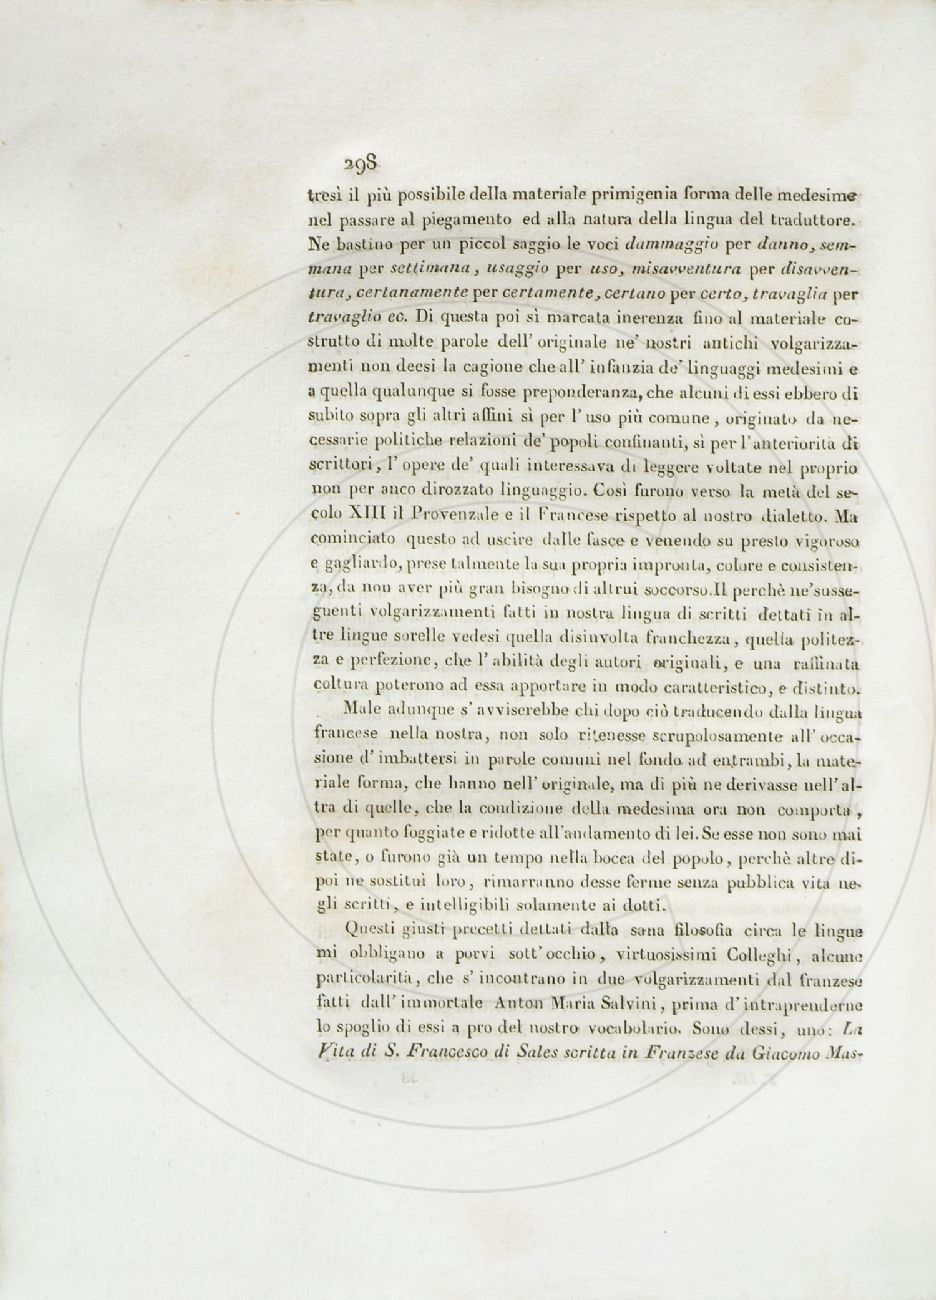 298
tresì il più possibile della materiale primigenia forma delle medesime
nel passare al piegamento ed alla natura della lingua del traduttore.
Ne bastino per un piccol saggio le voci dammaggio per danno, sem-
mana per settimana, usaggio per uso, misavventura per disavven-
tura, certanamente per certamente, certano per certo, travaglia per
travaglio ec. Di questa poi sì marcata inerenza fino al materiale co-
strutto di molte parole dell' originale ne' nostri antichi volgarizza-
menti non deesi la cagione che all' infanzia de' linguaggi medesimi e
a quella qualunque si fosse preponderanza, che alcuni di essi ebbero di
subito sopra gli altri affini sì per l' uso più comune, originato da ne-
cessarie politiche relazioni de' popoli confinanti, sì per l'anteriorità di
scrittori, l' opere de' quali interessava di leggere voltate nel proprio
non per anco dirozzato linguaggio. Così furono verso la metà del se-
colo XIII il Provenzale e il Francese rispetto al nostro dialetto. Ma
cominciato questo ad uscire dalle fasce e venendo su presto vigoroso
e gagliardo, prese talmente la sua propria impronta, colore e consisten-
za, da non aver più gran bisogno di altrui soccorso. Il perchè ne'susse-
guenti volgarizzamenti fatti in nostra lingua di scritti dettati in al-
tre lingue sorelle vedesi quella disinvolta franchezza, quella politez-
za e perfezione, che l' abilità degli autori originali, e una raffinata
coltura poterono ad essa apportare in modo caratteristico, e distinto.
Male adunque s' avviserebbe chi dopo ciò traducendo dalla lingua
francese nella nostra, non solo ritenesse scrupolosamente all' occa-
sione d' imbattersi in parole comuni nel fondo ad entrambi, la mate-
riale forma, che hanno nell' originale, ma di più ne derivasse nell' al-
tra di quelle, che la condizione della medesima ora non comporta,
per quanto foggiate e ridotte all'andamento di lei. Se esse non sono mai
state, o furono già un tempo nella bocca del popolo, perchè altre di-
poi ne sostituì loro, rimarranno desse ferme senza pubblica vita ne-
gli scritti, e intelligibili solamente ai dotti.
Questi giusti precetti dettati dalla sana filosofia circa le lingue
mi obbligano a porvi sott' occhio, virtuosissimi Colleghi, alcune
particolarità, che s' incontrano in due volgarizzamenti dal franzese
fatti dall' immortale Anton Maria Salvini, prima d' intraprenderne
lo spoglio di essi a pro del nostro vocabolario. Sono dessi, uno: La
Vita di S. Francesco di Sales scritta in Franzese da Giacomo Mas-